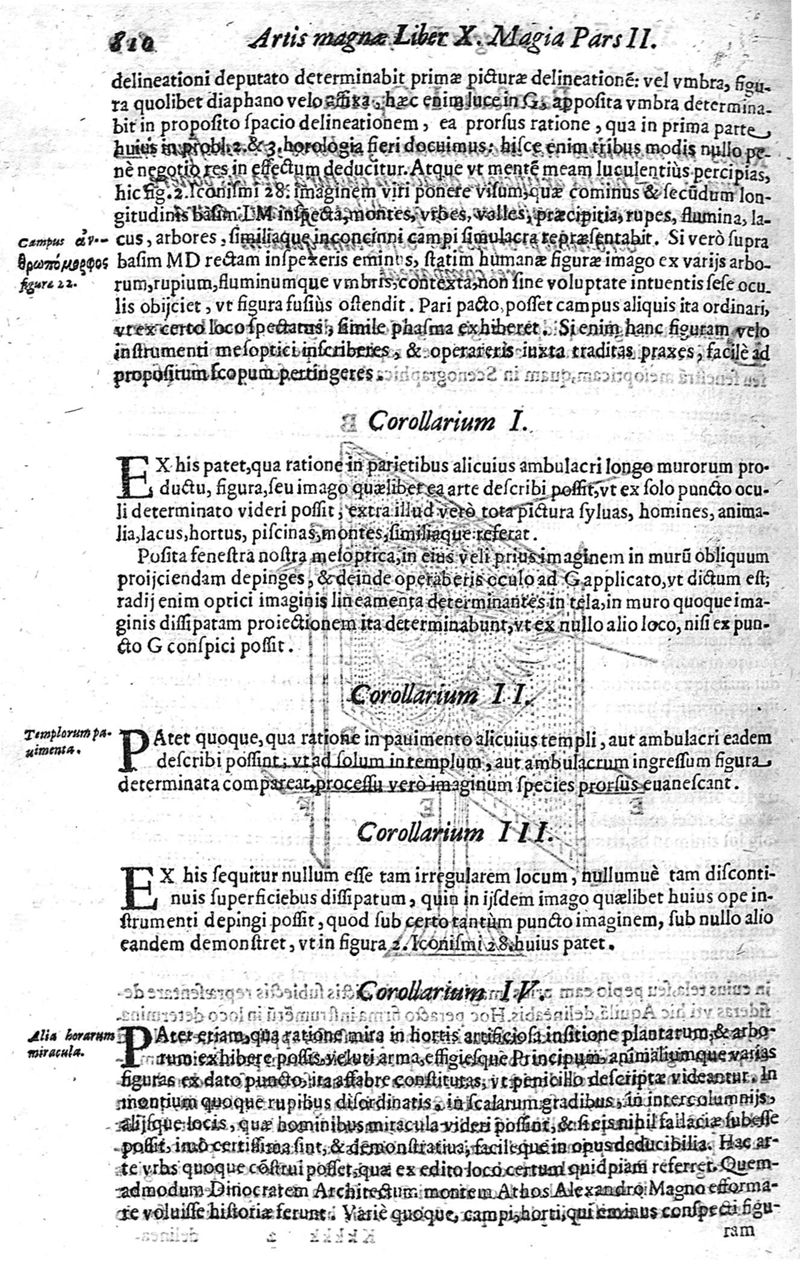 810 Artis magnæ Liber X. Magia Pars II.
delineationi deputato determinabit primæ picturæ delineationē: vel vmbra, figu-
ra quolibet diaphano velo affixa, hæc enim luce in G, apposita vmbra determina-
bit in proposito spacio delineationem, ea prorsus ratione, qua in prima parte
huius in probl. 2. & 3. horologia fieri docuimus; hisce enim tribus modis nullo pe-
nè negotio res in effectum deducitur. Atque vt mentē meam luculentiùs percipias,
hic fig. 2. Iconismi 28. imaginem viri ponere visum, quæ cominus & secūdum lon-
gitudinis basim LM inspecta, montes, vrbes, valles, præcipitia, rupes, flumina, la-
Campus ἀν-
θρωπόμορφος
figura 22.
cus, arbores, similiaque inconcinni campi simulacra repræsentabit. Si verò supra
basim MD rectam inspexeris eminus, statim humanæ figuræ imago ex varijs arbo-
rum, rupium, fluminumque vmbris, contexta, non sine voluptate intuentis sese ocu-
lis objciet, vt figura fusiùs ostendit. Pari pacto, posset campus aliquis ita ordinari,
vt ex certo loco spectatus, simile phasma exhiberet. Si enim hanc figuram velo
instrumenti mesoptici inscriberes, & operareris iuxta traditas praxes, facilè ad
propositum scopum pertingeres.
Corollarium I.
EX his patet, qua ratione in parietibus alicuius ambulacri longo murorum pro-
ductu, figura, seu imago quælibet ea arte describi possit, vt ex solo puncto ocu-
li determinato videri possit, extra illud verò tota pictura syluas, homines, anima-
lia, lacus, hortus, piscinas, montes, similiaque referat.
Posita fenestra nostra mesoptica, in eius veli prius imaginem in murū obliquum
proijciendam depinges, & deinde operaberis oculo ad G applicato, vt dictum est;
radij enim optici imaginis lineamenta determinantes in tela, in muro quoque ima-
ginis dissipatam proiectionem ita determinabunt, vt ex nullo alio loco, nisi ex pun-
cto G conspici possit.
Corollarium II.
Templorum pa-
uimenta.
PAtet quoque, qua ratione in pauimento alicuius templi, aut ambulacri eadem
describi possint; vt ad solum in templum, aut ambulacrum ingressum figura
determinata compareat, processu verò imaginum species prorsus euanescant.
Corollarium III.
EX his sequitur nullum esse tam irregularem locum, nullumuè tam disconti-
nuis superficiebus dissipatum, quin in ijsdem imago quælibet huius ope in-
strumenti depingi possit, quod sub certo tantùm puncto imaginem, sub nullo alio
eandem demonstret, vt in figura 2. Iconismi 28. huius patet.
Corollarium IV.
Alia horarum
miracula.
PAtet etiam, qua ratione mira in hortis artificiosa insitione plantarum, & arbo-
rum exhibere possis, veluti arma, effigiesque Principum, animaliumque varias
figuras ex dato puncto, ita affabre constitutas, vt penicillo descriptæ videantur. In
montium quoque rupibus disordinatis, in scalarum gradibus, in intercolumnijs,
alijsque locis, quæ hominibus miracula videri possint, & si eis nihil fallaciæ subesse
possit, imò certissima sint, & demonstratiua, facileque in opus deducibilia. Hac ar-
te vrbs quoque cōstrui posset, quæ ex edito loco certum quidpiam referret. Quem-
admodum Dinocratem Architectum montem Athos Alexandro Magno efforma-
re voluisse historiæ ferunt. Variè quoque, campi, horti, qui eminus conspecti figu-
ram